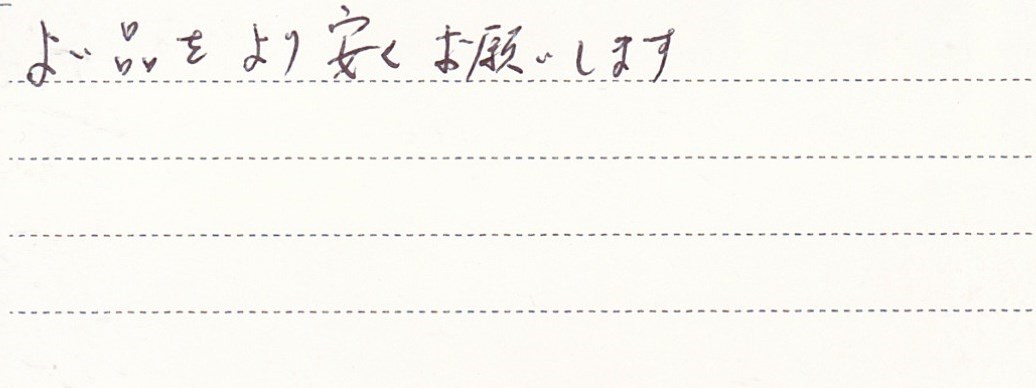 よい品をより安くお願いします